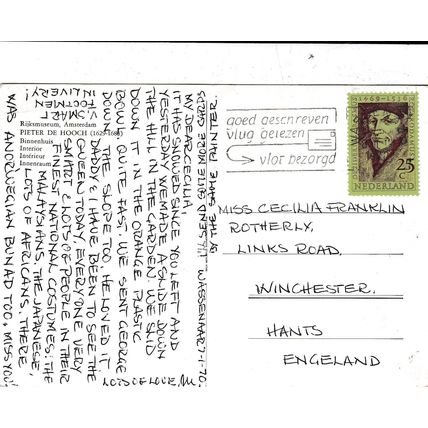 Rijksmuseum, Amsterdam
PIETER DE HOOCH (1629-1683)
Binnenhuis
Interior
Intérieur
Innenraum
goed geschreven
vlug gelezen
vlot bezorgd
1469-1536
25
NEDERLAND
MISS CECILIA FRANKLIN
ROTHERLY,
LINKS ROAD,
WINCHESTER,
HANTS
ENGELAND
WASSENAAR 7-1-70.
MY DEAR CECILIA,
IT HAS SNOWED SINCE YOU LEFT AND
YESTERDAY WE MADE A SLIDE DOWN
THE HILL IN THE GARDEN. WE SLID
DOWN IT IN THE ORANGE PLASTIC
BOWL QUITE FAST. WE SENT GEORGE
DOWN THE SLOPE TOO. HE LOVED IT.
DADDY & I HAVE BEEN TO SEE THE
QUEEN TODAY. EVERYONE VERY
SMART & LOTS OF PEOPLE IN THEIR
FINEST NATIONAL COSTUMES: THE
MALAYSIANS, THE JAPANESE,
LOTS OF AFRICANS. THERE
WAS A NORWEGIAN BUNAD TOO. MISS YOU!
LOTS OF LOVE, M
V. SMART
FOOTMEN
IN LIVERY!
MORE CARDS
BY THE SAME PAINTER